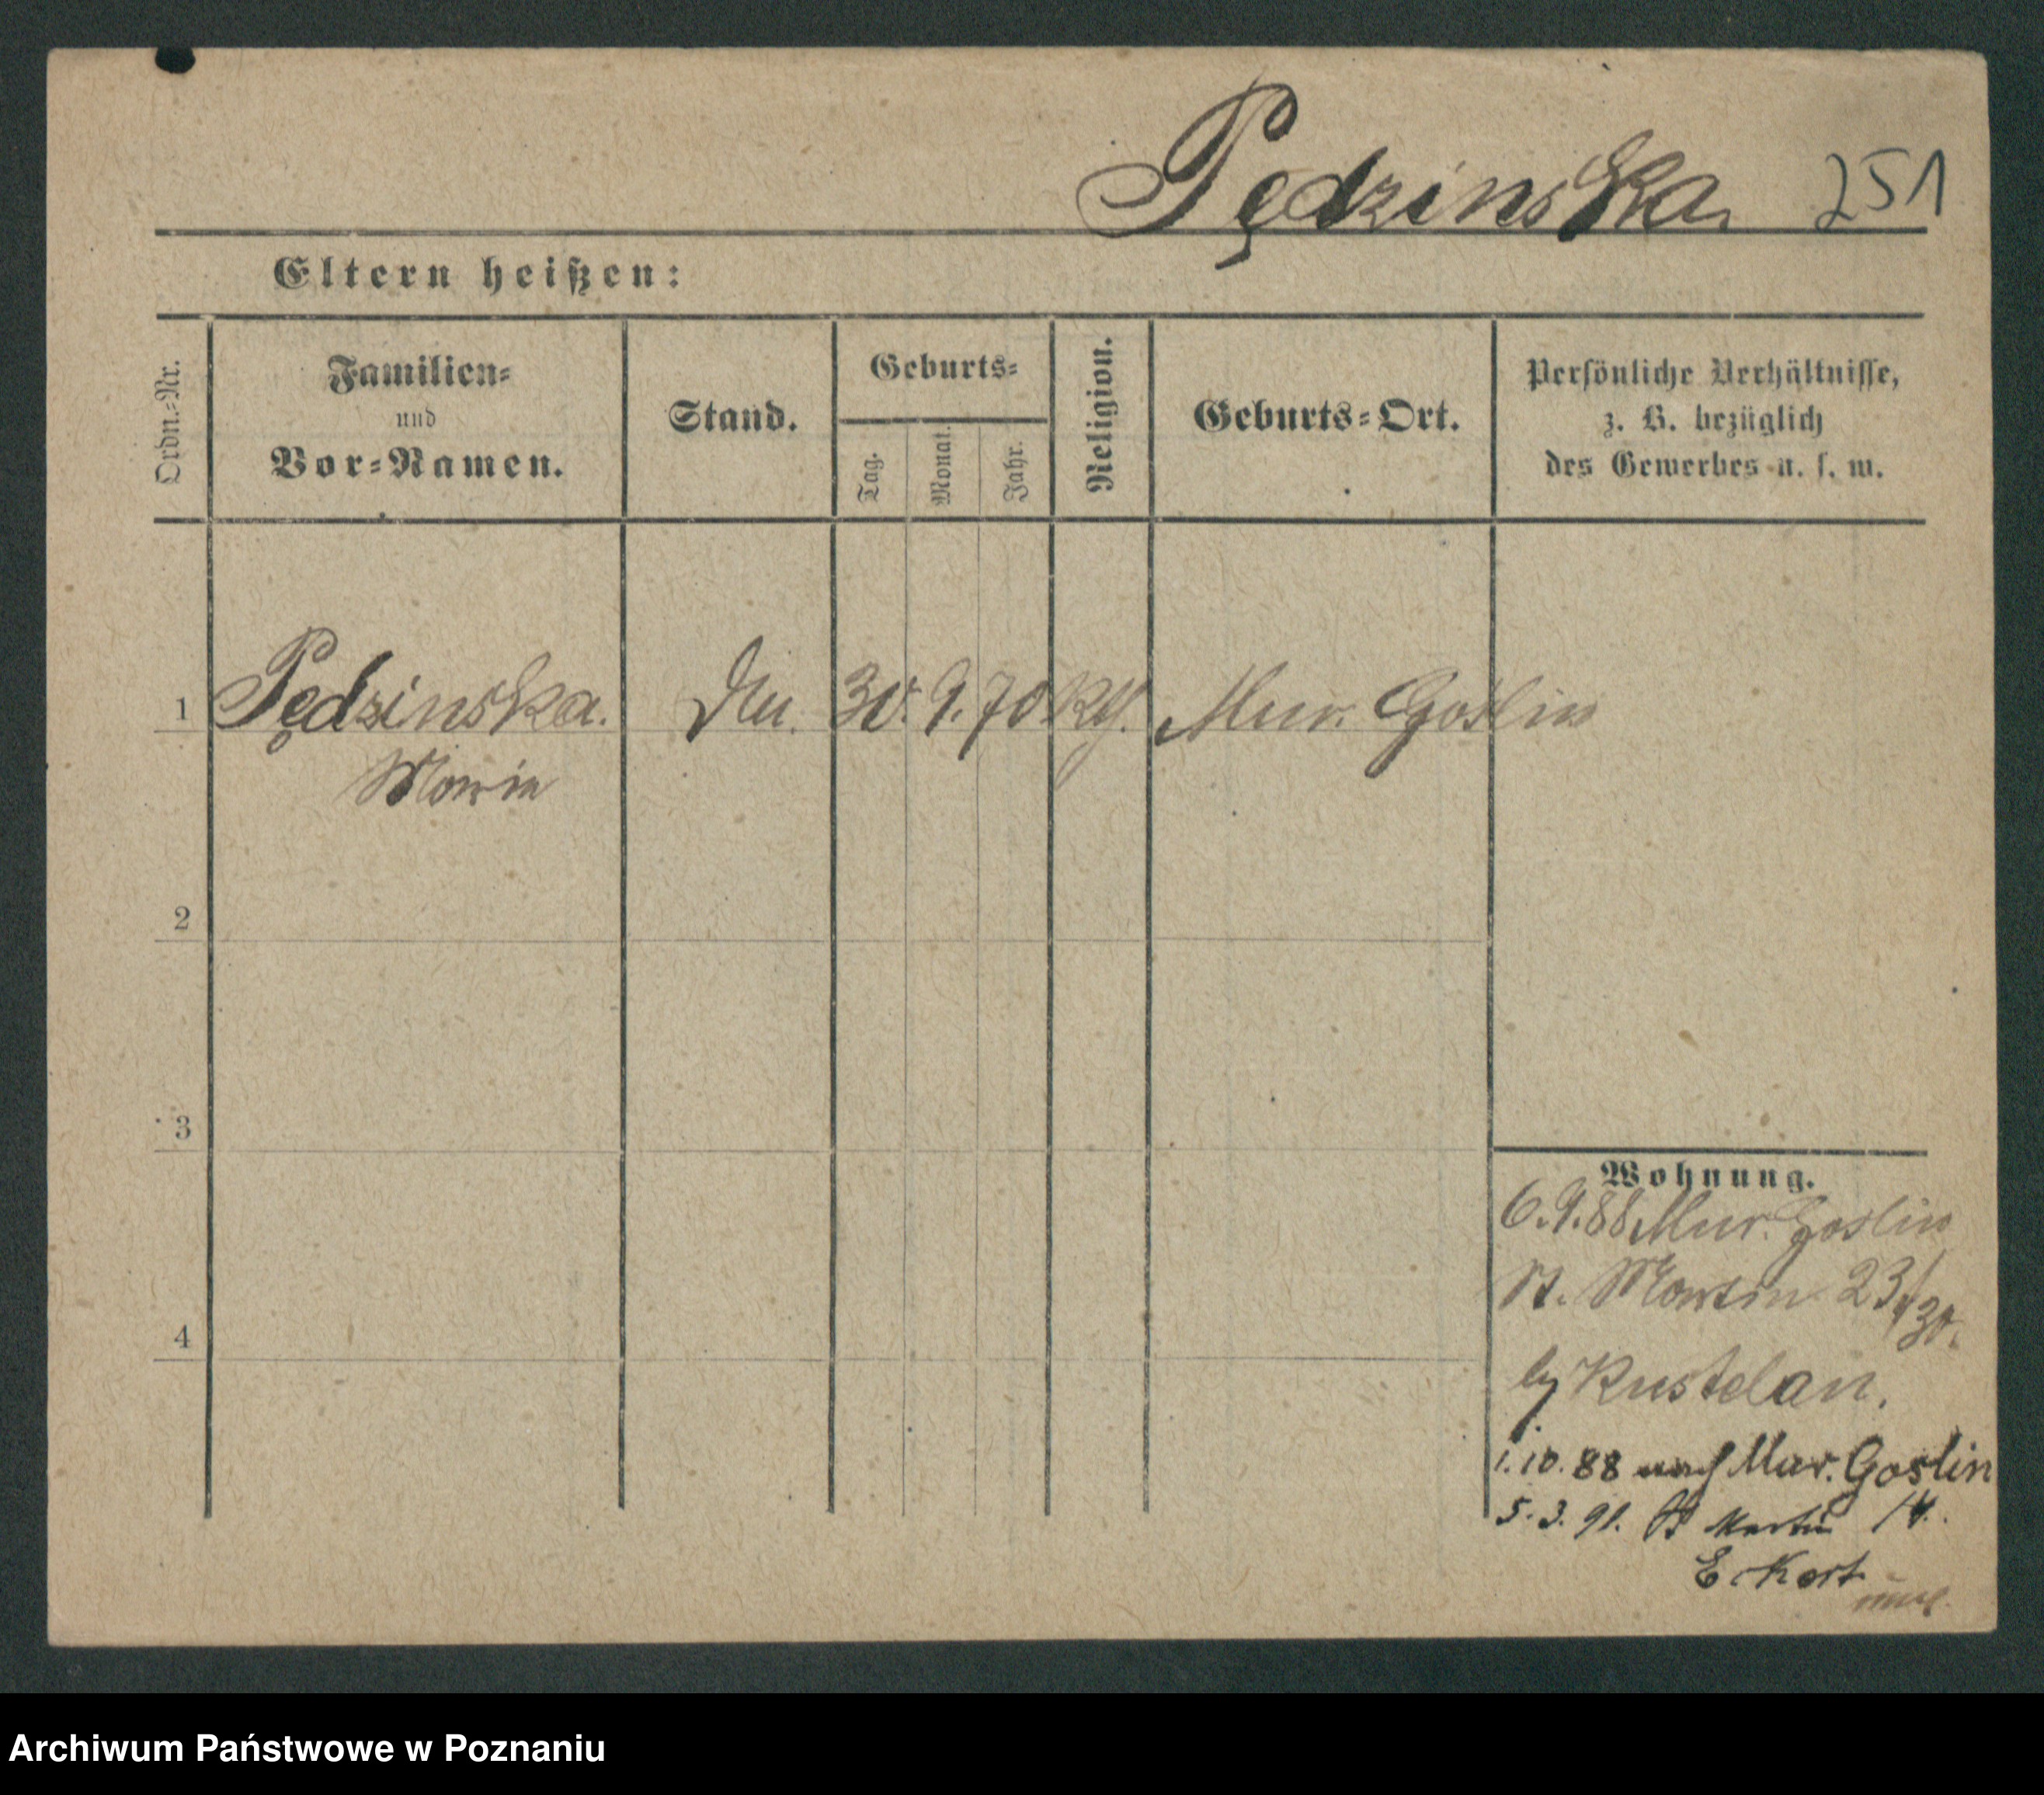 Pędzinska 251
Eltern heißen:
Ordn.-Nr.
Familien-
und
Vor-Namen.
Stand.
Geburts-
Tag.
Monat.
Jahr.
Religion.
Geburts-Ort.
Persönliche Verhältnisse,
z. B. bezüglich
des Gewerbes u. s. w.
1 Pędzinska. 30. 9. 70 Mur. Goslin
Marie
2
3
4
Wohnung.
6.9.88 Mur. Goslin
St. Martin 23/
Kustelan.
1.10.88 nach Mur. Goslin
5.3.91. St Martin 14.
Eckert
Archiwum Państwowe w Poznaniu